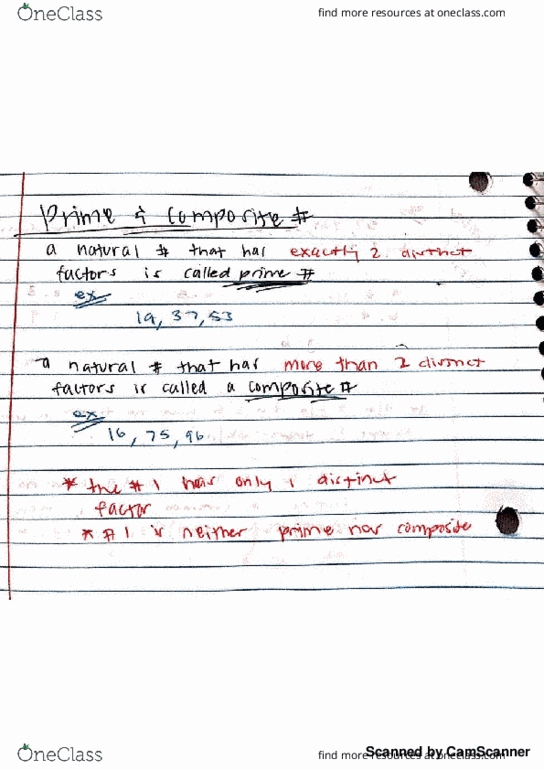 OneClass find more resources at oneclass.com
Prime & Composite #
a natural # that has exactly 2 distinct
factors is called prime #
ex
19, 37, 53
a natural # that has more than 2 distinct
factors is called a composite #
ex
16, 75, 96
* the # 1 has only 1 distinct
factor
* # 1 is neither prime nor composite
OneClass find more resources at oneclass.com
Scanned by CamScanner